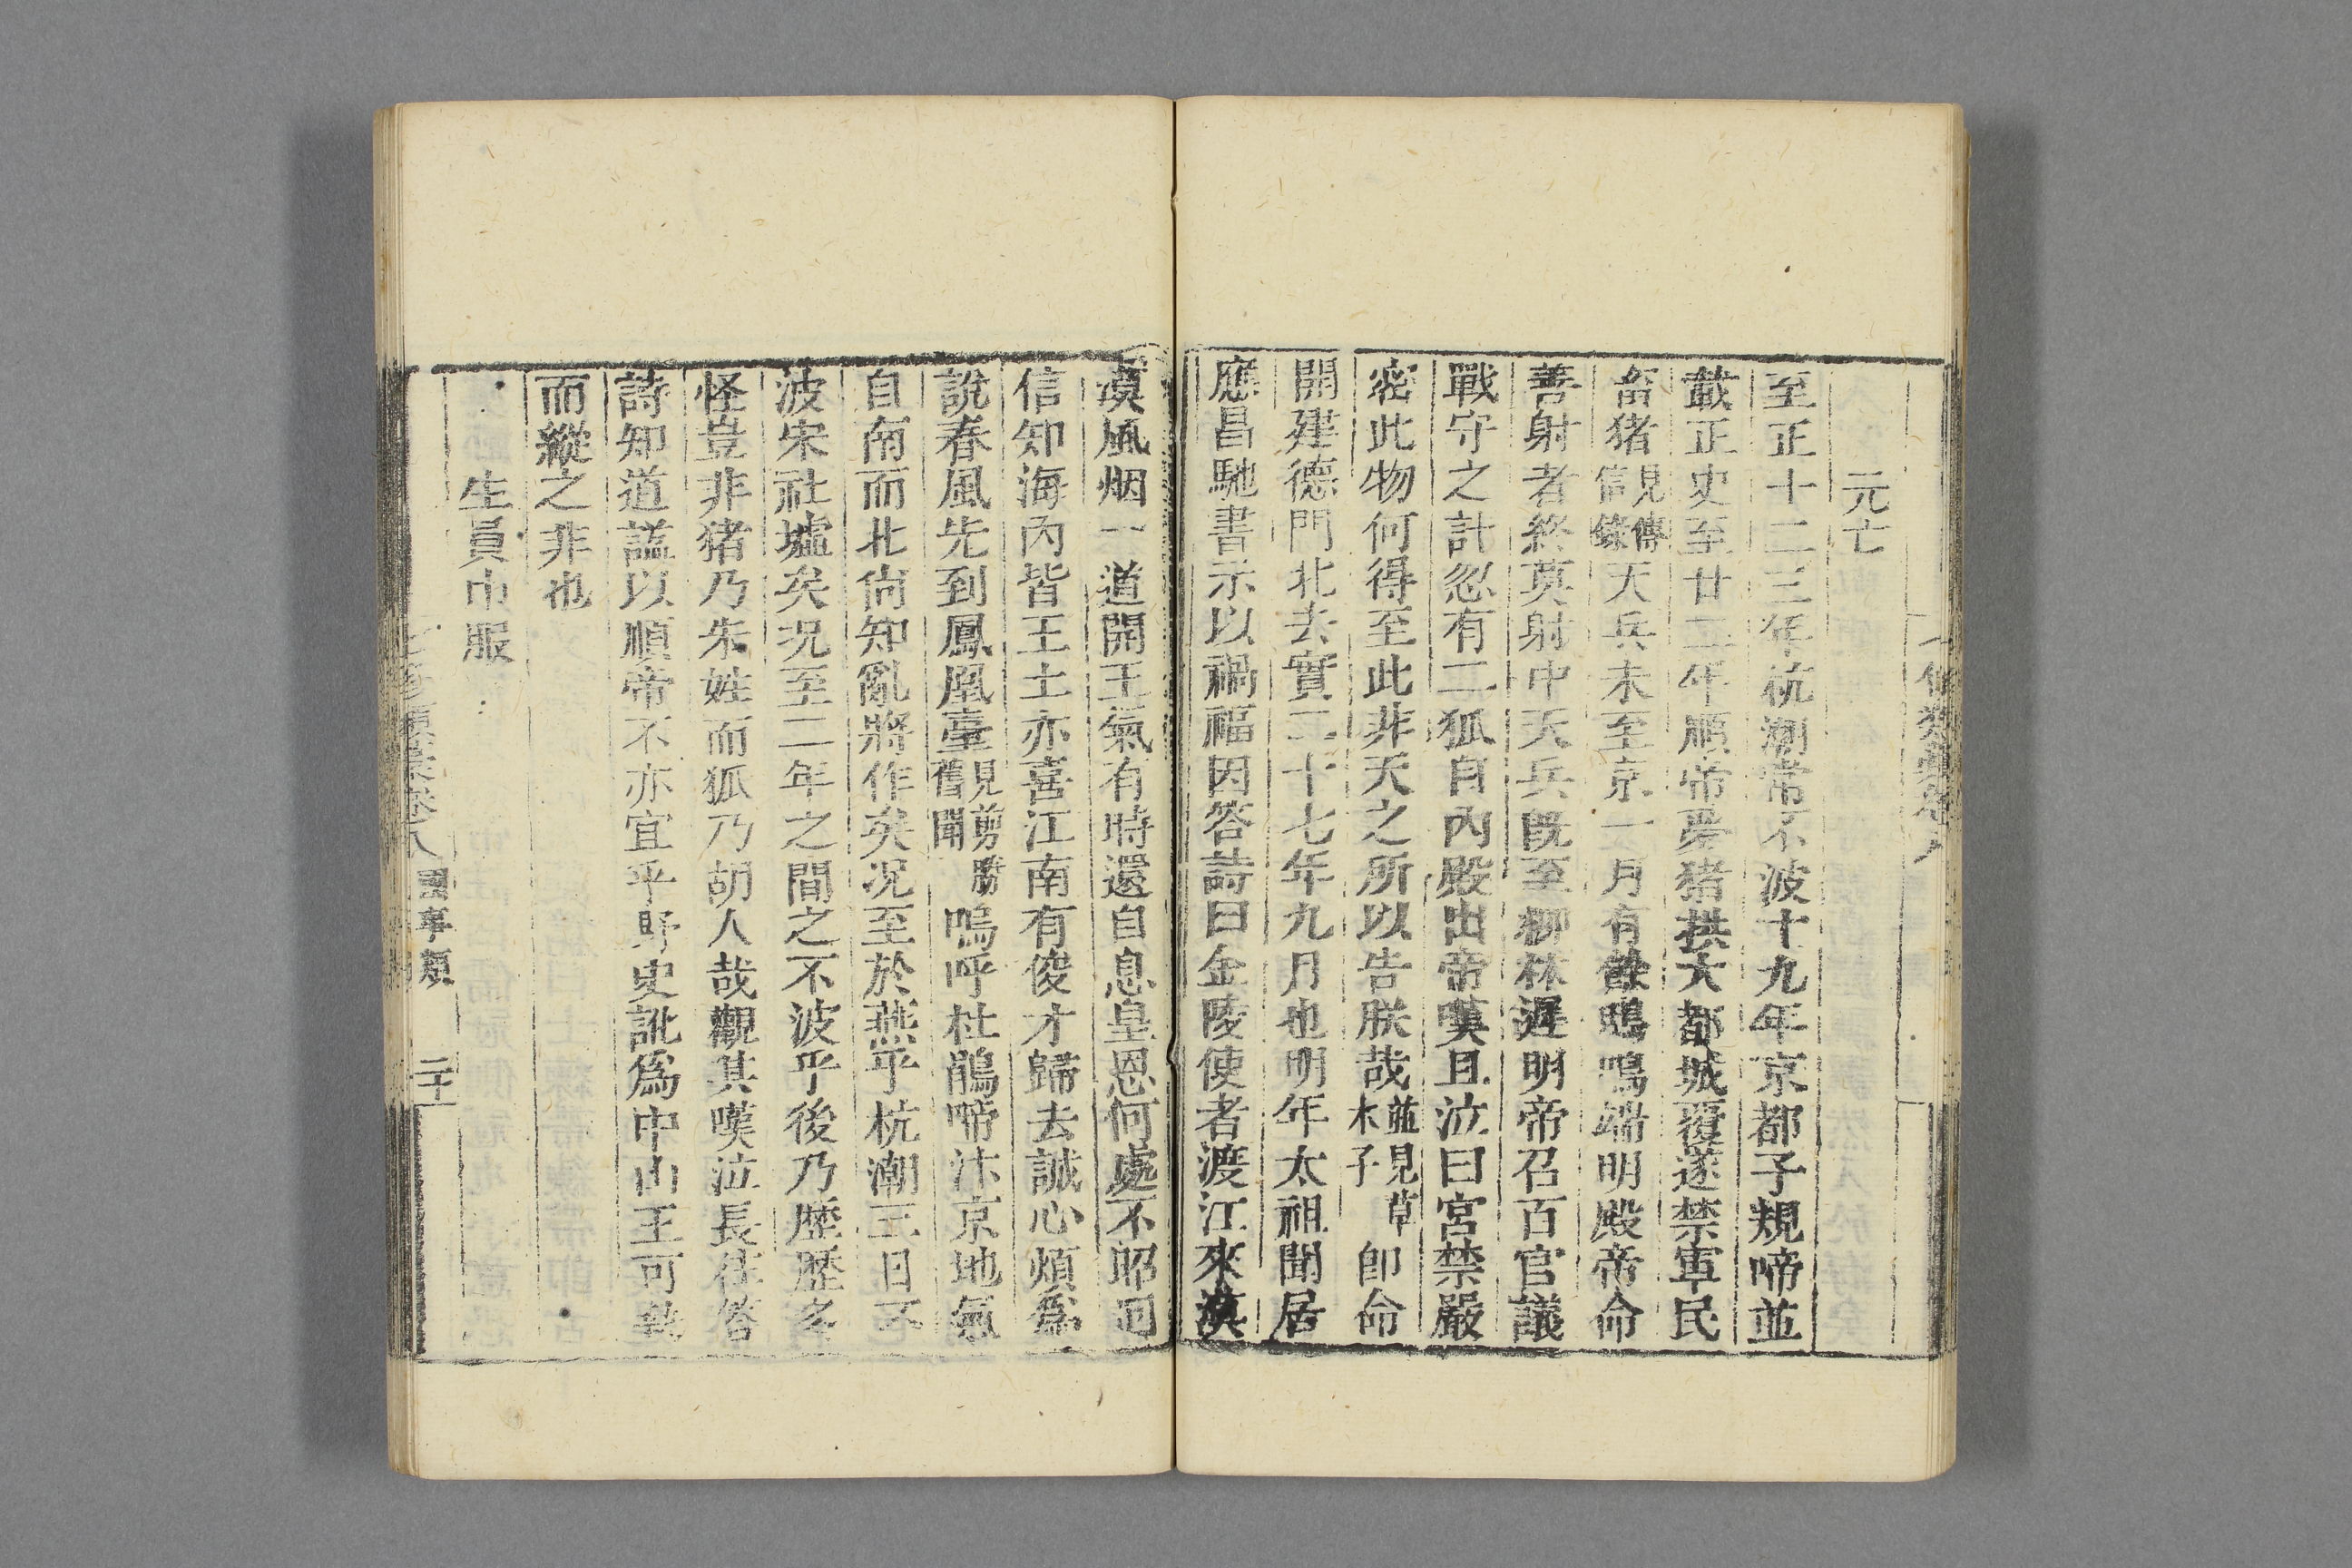 元亡
至正十二三年杭潮常不波十九年京都子規啼並
載正史至廿二年順帝夢猪拱大都城覆遂禁軍民
畜猪見傳信錄天兵未至京一月有鵂鶹鳴端明殿帝命
善射者終莫射中天兵旣至柳林遲明帝召百官議
戰守之計忽有二狐自內殿出帝嘆且泣曰宮禁嚴
密此物何得至此非天之所以告朕哉並見草木子卽命
開建德門北去實二十七年九月也明年太祖聞居
應昌馳書示以禍福因答詩曰金陵使者渡江來漠
漠風烟一道開王氣有時還自息皇恩何處不昭回
信知海內皆王土亦喜江南有俊才歸去誠心煩爲
說春風先到鳳凰臺見剪勝舊聞嗚呼杜鵑啼汴京地氣
自南而北尙知亂將作矣况至於燕乎杭潮三日不
波宋社墟矣况至二年之間之不波乎後乃歷歷多
怪豈非猪乃朱姓而狐乃胡人哉觀其嘆泣長往答
詩知道謚以順帝不亦宜乎野史訛爲中山王可
而縱之非也
生員巾服
七修類藁卷八 國事類 二十